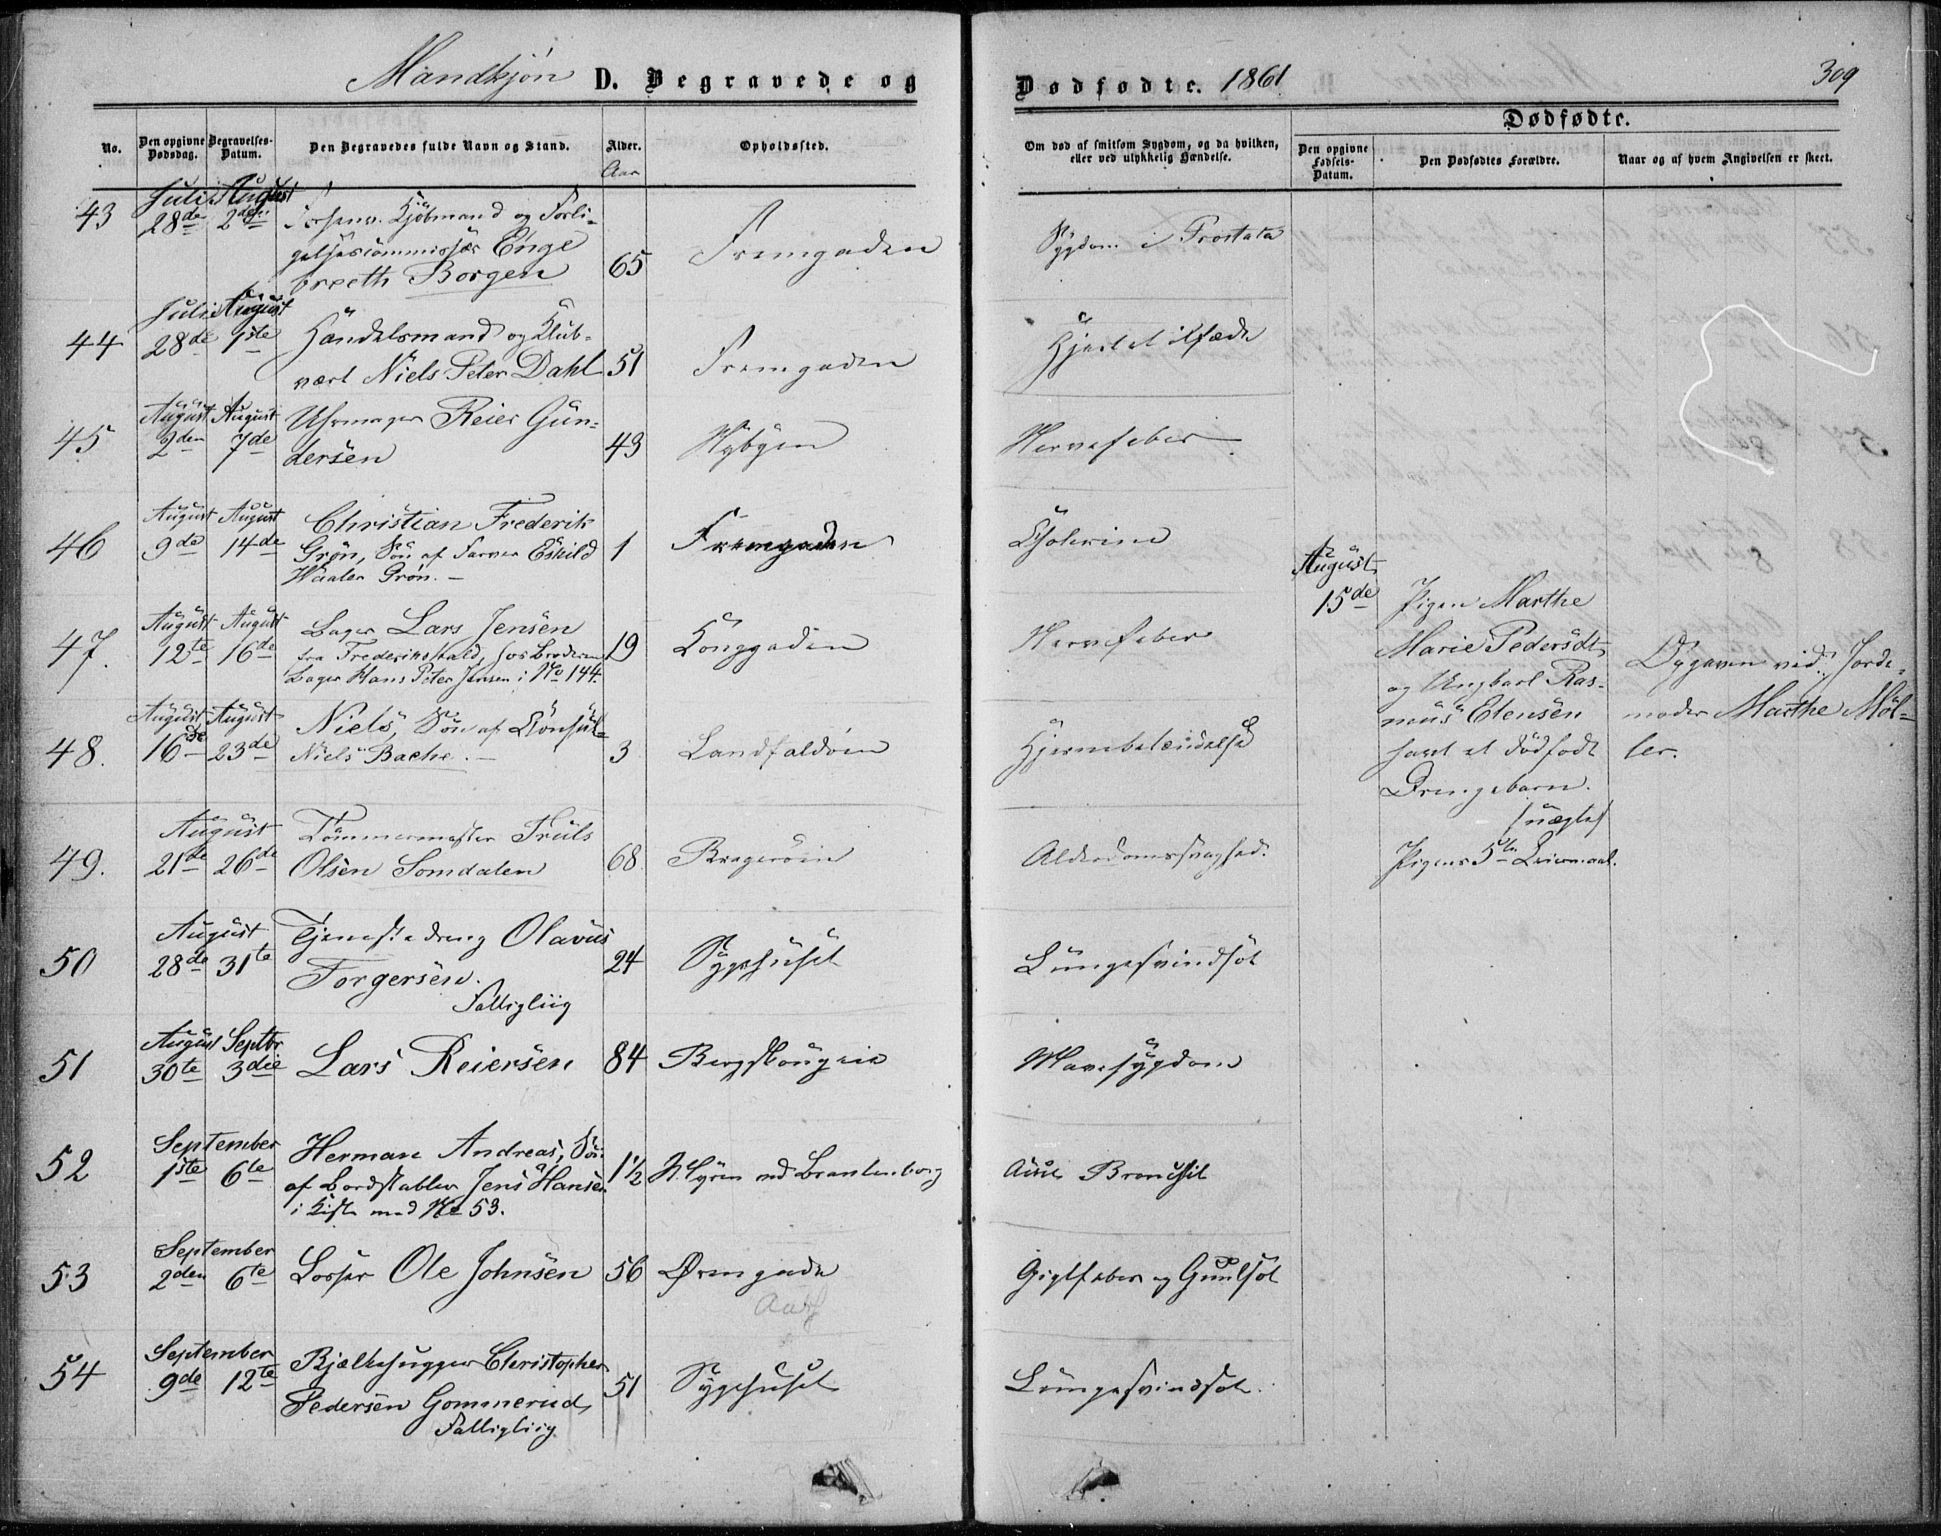 Mandkjøn D. Begravede og
Dødfødte. 1861
309
No.
Den opgivne Dødsdag.
Begravelses-Datum.
Den Begravedes fulde Navn og Stand.
Alder.
Aar
Opholdssted.
Om død af smitsom Sygdom, og da hvilken,
eller ved ulykkelig Hændelse.
Dødfødte.
Den opgivne Fødsels-Datum.
Den Dødfødtes Forældre.
Naar og af hvem Angivelsen er skeet.
43 Juli 28de August 2den Kjöbmand og Forli-
gelsescommissær Enge
breth Borgen 65
Sygdom i Prostata
44 Juli 28de August 1ste Handelsmand og Klub-
vært Niels Peter Dahl 51
Hjertetilfælde
45 August 2den August 7de Uhrmager Reier Gun-
dersen 43 Nybyen
Nervefeber
46 August 9de August 14de Christian Frederik
Grön, Sön af Farver Eskild
Waaler Grön. 1
Cholerine
47. August 12te August 16de Bager Lars Jensen
fra Frederikshald, hos Broderen
Bager Hans Peter Jensen i No 144. 19 Konggaden
Nervefeber
48. August 16de August 23de Niels, Sön af Konsul
Niels Bache. 3 Landfaldöen
Hjernebetændelse
49. August 21de 26de Tömmermester Truls
Olsen Somdalen 68 Brageröen
Alderdomssvaghed.
50 August 28de 31te Tjenestedreng Olavus
Torgersen.
Fattiglig 24 Sygehuset
Lungesvindsot
51 August 30te Septbr 3die Lars Reiersen 84 Bergskougeie
Mavesygdom
52 September 1ste 6te Herman Andreas, Sön
af Bordstabler Jens Hansen
i Kiste med No 53. 1½
53 September 2den 6te Losser Ole Johnsen 56 Øvregade
Gigtfeber og Guulsot
54 September 9de 12te Bjælkehugger Christopher
Pedersen Gommerud,
Fattiglig 51 Sygehuset
Lungesvindsot.
August 15de Pigen Marthe
Marie Pedersdt.
og Ungkarl Ras-
mus Edensen
havt et dödfödt
Drengebarn.
Pigens 5te Leiermaal.
Opgaven ved Jorde-
moder Marthe Möl-
ler.